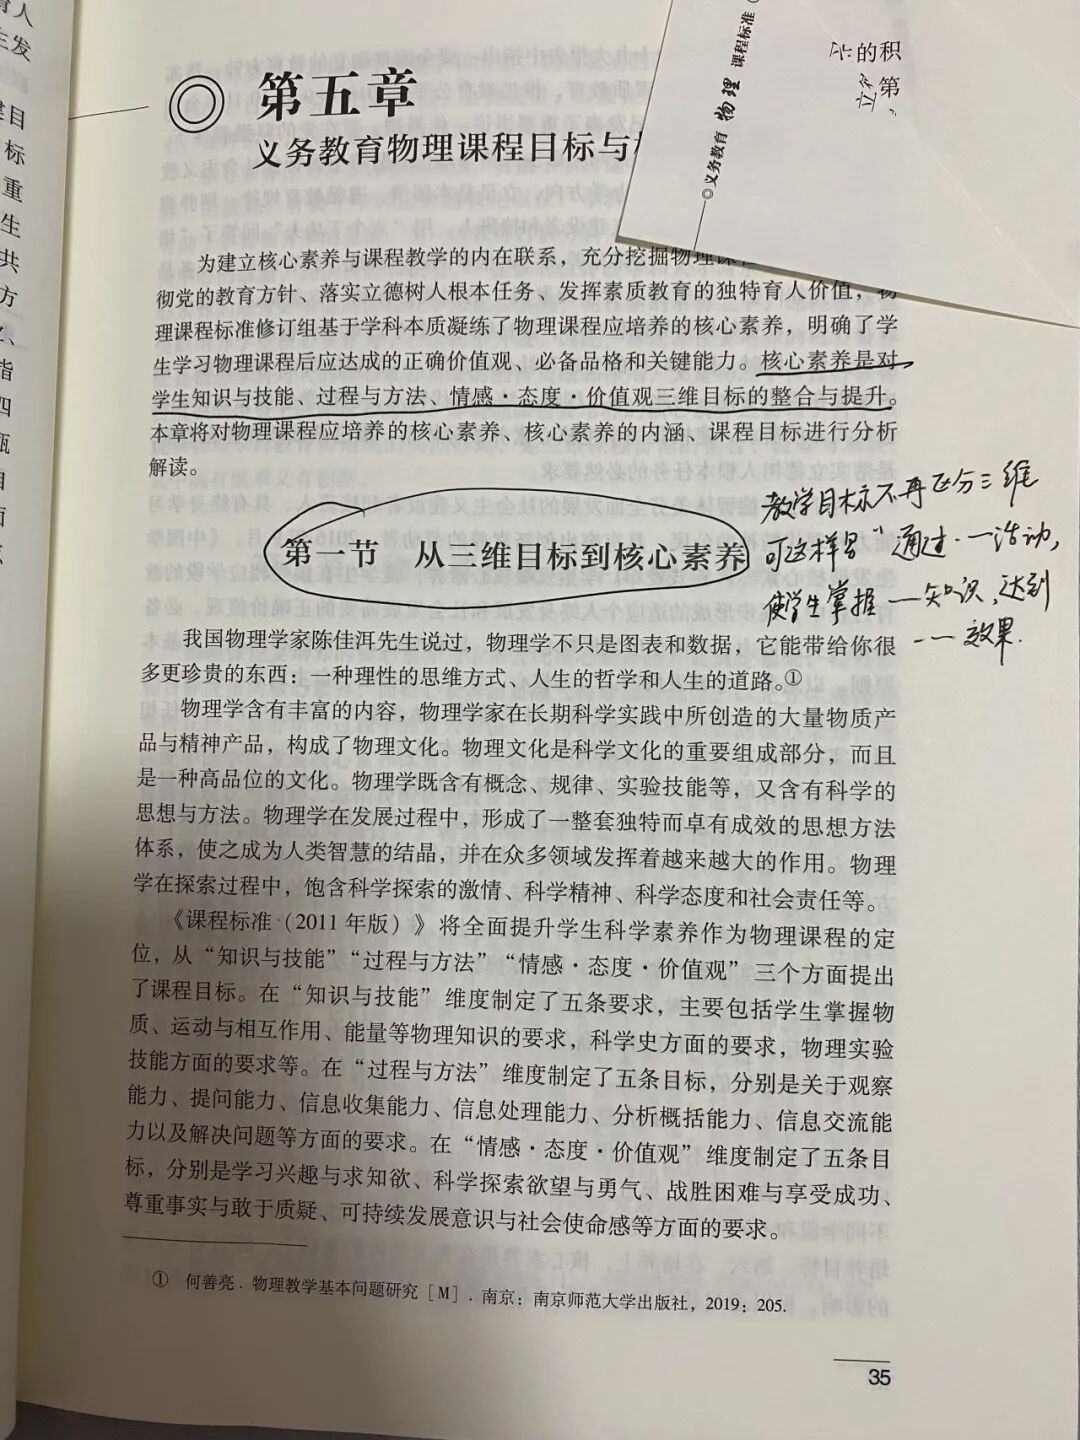 第五章
义务教育物理课程目标与
为建立核心素养与课程教学的内在联系，充分挖掘物理课
彻党的教育方针、落实立德树人根本任务、发挥素质教育的独特育人价值，物
理课程标准修订组基于学科本质凝练了物理课程应培养的核心素养，明确了学
生学习物理课程后应达成的正确价值观、必备品格和关键能力。核心素养是对
学生知识与技能、过程与方法、情感·态度·价值观三维目标的整合与提升。
本章将对物理课程应培养的核心素养、核心素养的内涵、课程目标进行分析
解读。
第一节 从三维目标到核心素养
教学目标不再区分三维
可这样写“通过··一活动，
使学生掌握一知识，达到
一一效果.
我国物理学家陈佳洱先生说过，物理学不只是图表和数据，它能带给你很
多更珍贵的东西：一种理性的思维方式、人生的哲学和人生的道路。①
物理学含有丰富的内容，物理学家在长期科学实践中所创造的大量物质产
品与精神产品，构成了物理文化。物理文化是科学文化的重要组成部分，而且
是一种高品位的文化。物理学既含有概念、规律、实验技能等，又含有科学的
思想与方法。物理学在发展过程中，形成了一整套独特而卓有成效的思想方法
体系，使之成为人类智慧的结晶，并在众多领域发挥着越来越大的作用。物理
学在探索过程中，饱含科学探索的激情、科学精神、科学态度和社会责任等。
《课程标准（2011年版）》将全面提升学生科学素养作为物理课程的定
位，从“知识与技能”“过程与方法”“情感·态度·价值观”三个方面提出
了课程目标。在“知识与技能”维度制定了五条要求，主要包括学生掌握物
质、运动与相互作用、能量等物理知识的要求，科学史方面的要求，物理实验
技能方面的要求等。在“过程与方法”维度制定了五条目标，分别是关于观察
能力、提问能力、信息收集能力、信息处理能力、分析概括能力、信息交流能
力以及解决问题等方面的要求。在“情感·态度·价值观”维度制定了五条目
标，分别是学习兴趣与求知欲、科学探索欲望与勇气、战胜困难与享受成功、
尊重事实与敢于质疑、可持续发展意识与社会使命感等方面的要求。
① 何善亮．物理教学基本问题研究［M］．南京：南京师范大学出版社，2019：205.
35
义务教育 物理 课程标准
的积
第